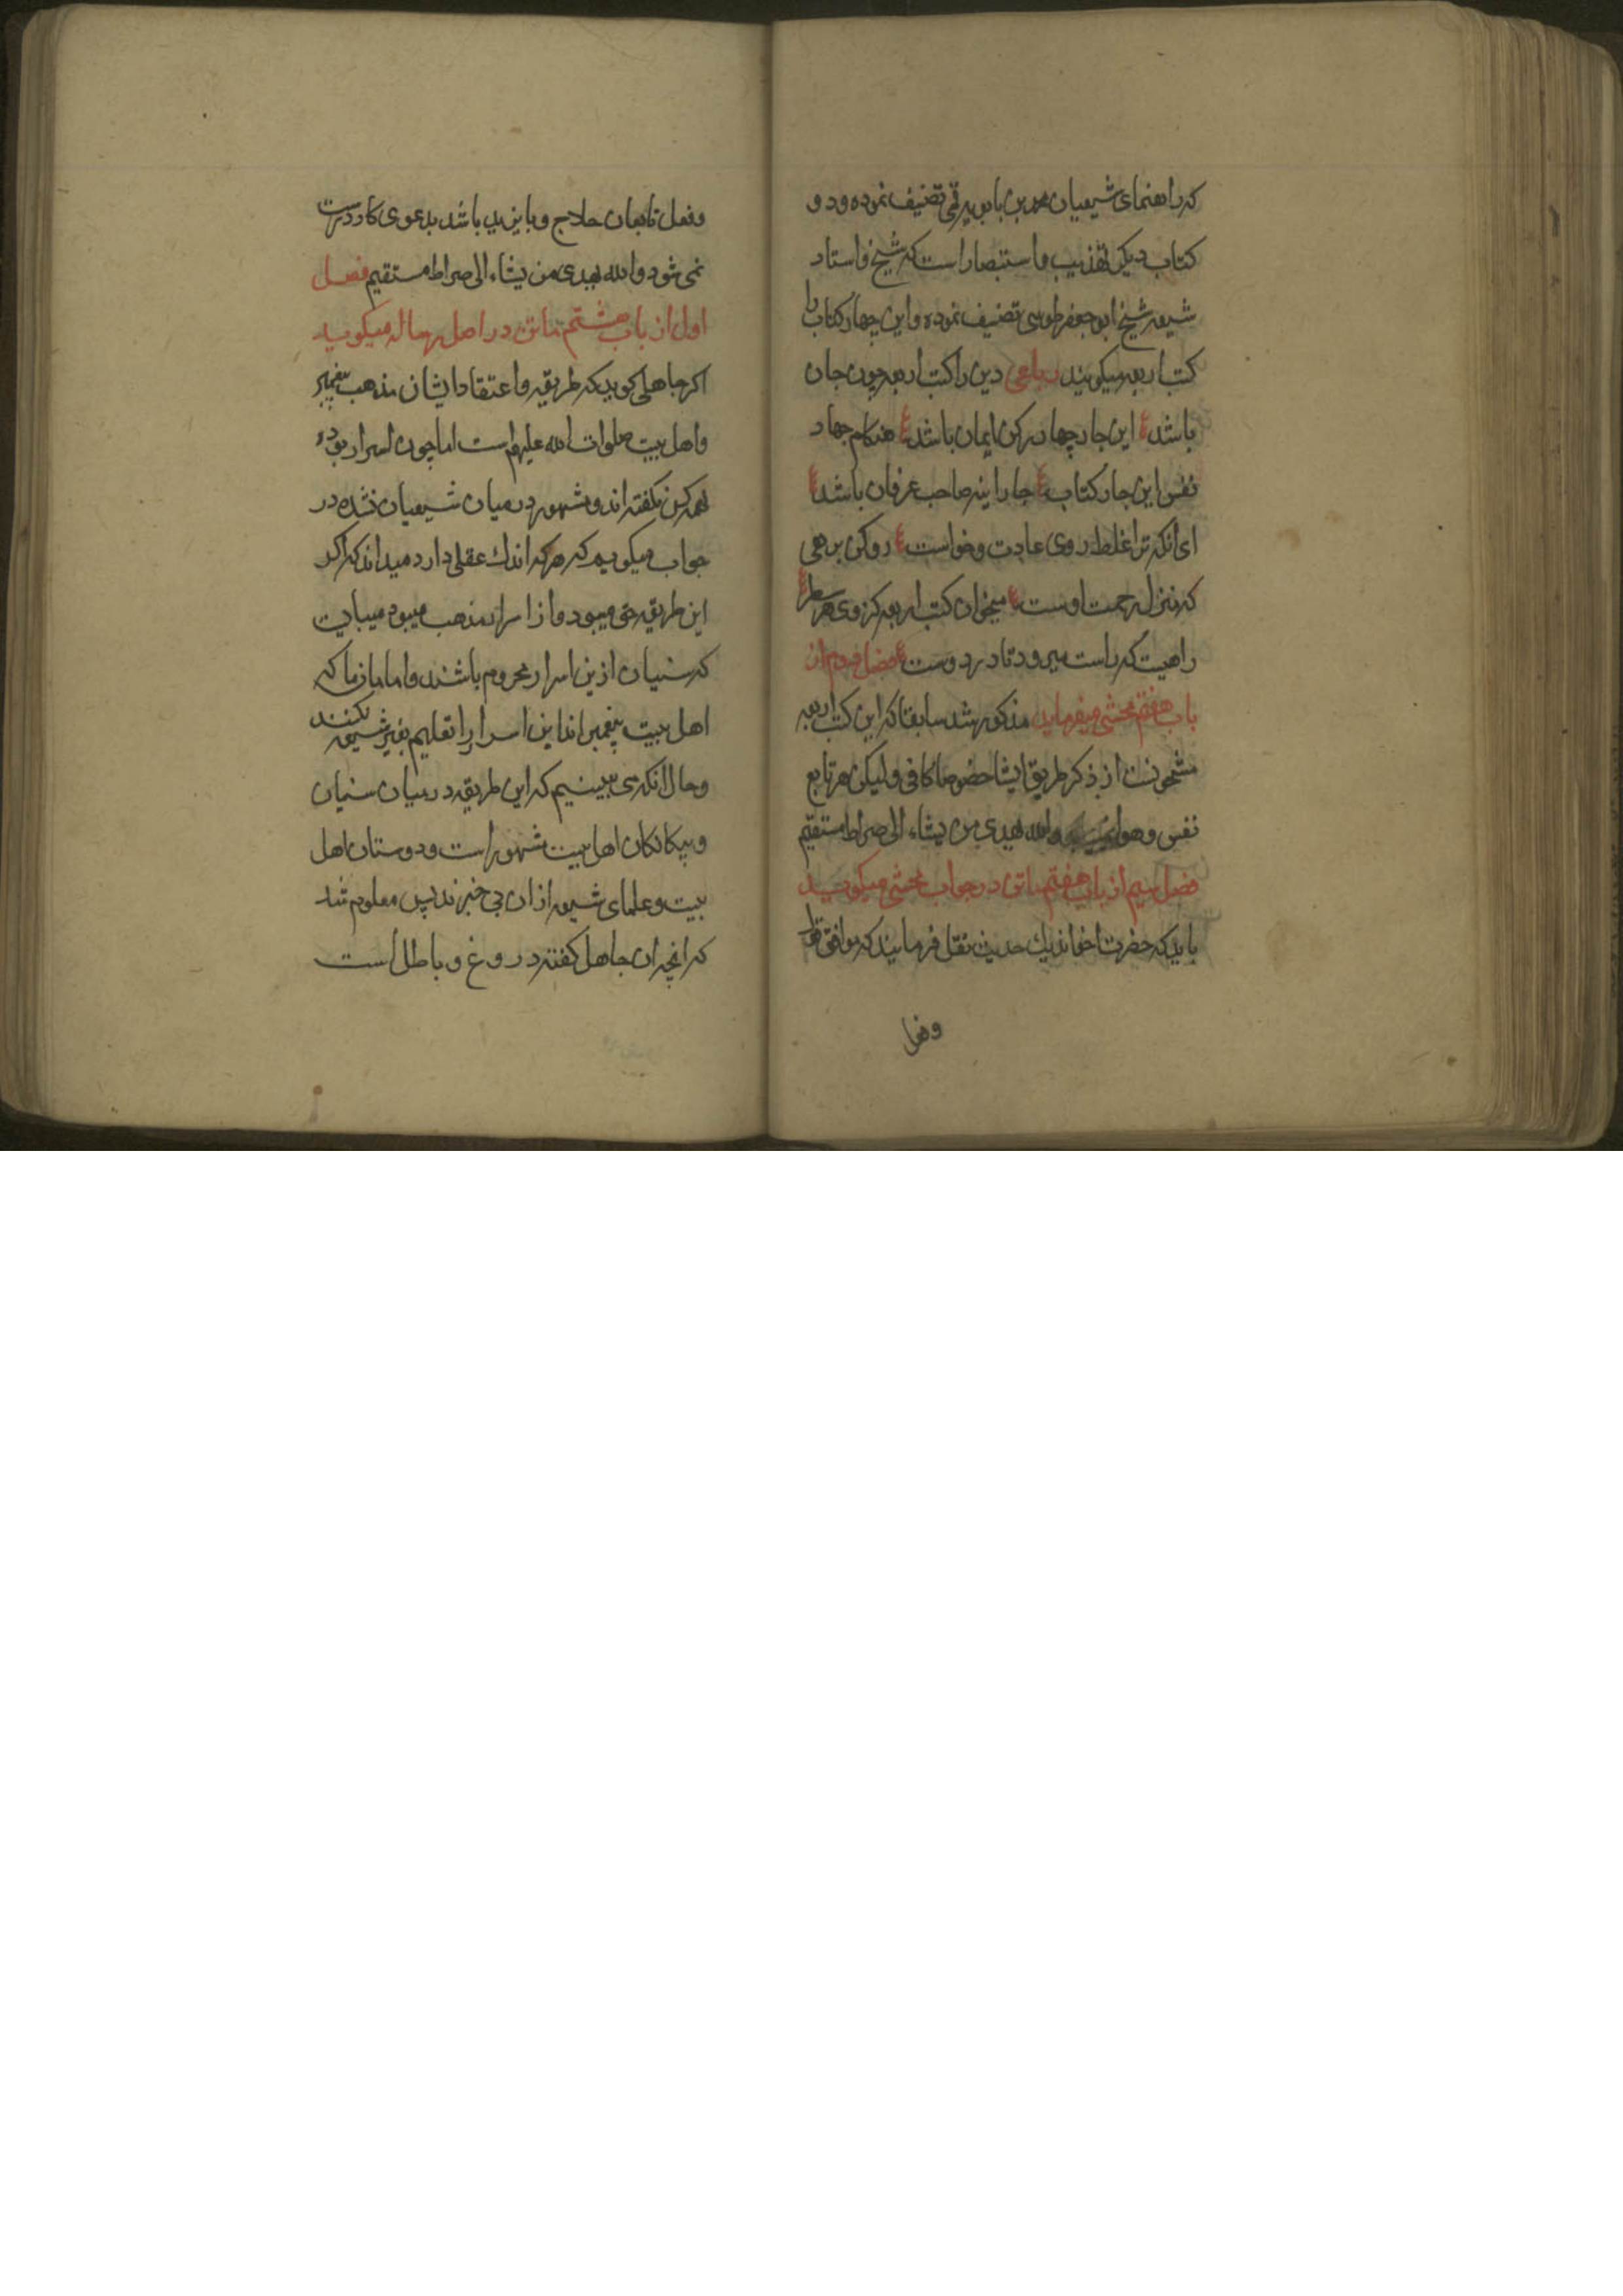 که راهنمای شیعیان محمد بن بابویه قمی تصنیف نموده و دو
کتاب دیکر تهذیب و استبصار است که شیخ و استاد
شیعه شیخ ابو جعفر طوسی تصنیف نموده و این چهار کتاب را
کتب اربعه میکویند رباعی دین را کتب اربعه چون جان
باشد این چار چهار رکن ایمان باشد هنکام جهاد
نفس این چار کتاب چار اینه صاحب عرفان باشد
ای انکه ترا غلط روی عادت و خواست رو کن برهی
که منزل رحمت اوست میخوان کتب اربعه کز وی هر سطر
راهیت که راست میرود تا در دوست فصل دوم از
باب هفتم محشی میفرماید مذکور شد سابقا که این کتب اربعه
مشحونست از ذکر طریق ایشا خصوصا کافی ولیکن هر تابع
نفس و هوا والله یهدی من یشاء الی صراط مستقیم
فصل سیم از باب هفتم ماتن در جواب محشی میکوید
باید که حضرت اخوند یک حدیث نقل فرمایند که موافق قول
وفعل
وفعل تابعان حلاج و بایزید باشد بدعوی کار درست
نمی شود والله یهدی من یشاء الی صراط مستقیم فصل
اول از باب هشتم ماتن در اصل رساله میکوید
اکر جاهلی کوید که طریقه و اعتقاد ایشان مذهب پیغمبر
و اهل بیت صلوات الله علیهم است اما چون اسرار بوده
بهمه کس نکفته اند و مشهور در میان شیعیان نشده در
جواب میکویم که هر که اندک عقلی دارد میداند که اکر
این طریقه حق میبود و از اسرار مذهب میبود میبایست
که سنیان ازین اسرار محروم باشند و امامان ما که
اهل بیت پیغمبر اند این اسرار را تعلیم بغیر شیعه نکنند
و حال انکه می بینیم که این طریقه در میان سنیان
و بیکانکان اهل بیت مشهور است و دوستان اهل
بیت و علمای شیعه از ان بی خبرند پس معلوم شد
که انچه ان جاهل کفته دروغ و باطل است